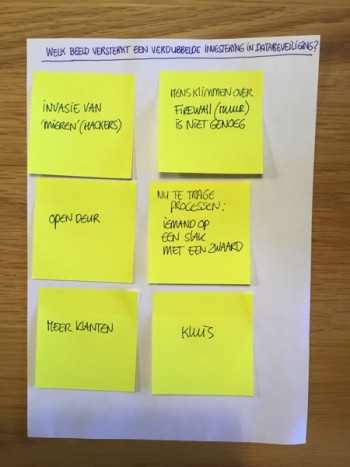 WELK BEELD VERSTERKT EEN VERDUBBELDE INVESTERING IN DATABEVEILIGING?
INVASIE VAN
'MIEREN' (HACKERS)
MENS KLIMMEN OVER
FIREWALL (MUUR)
IS NIET GENOEG
OPEN DEUR
NU TE TRAGE
PROCESSEN:
IEMAND OP
EEN SLAK
MET EEN ZWAARD
MEER KLANTEN
KLUIS